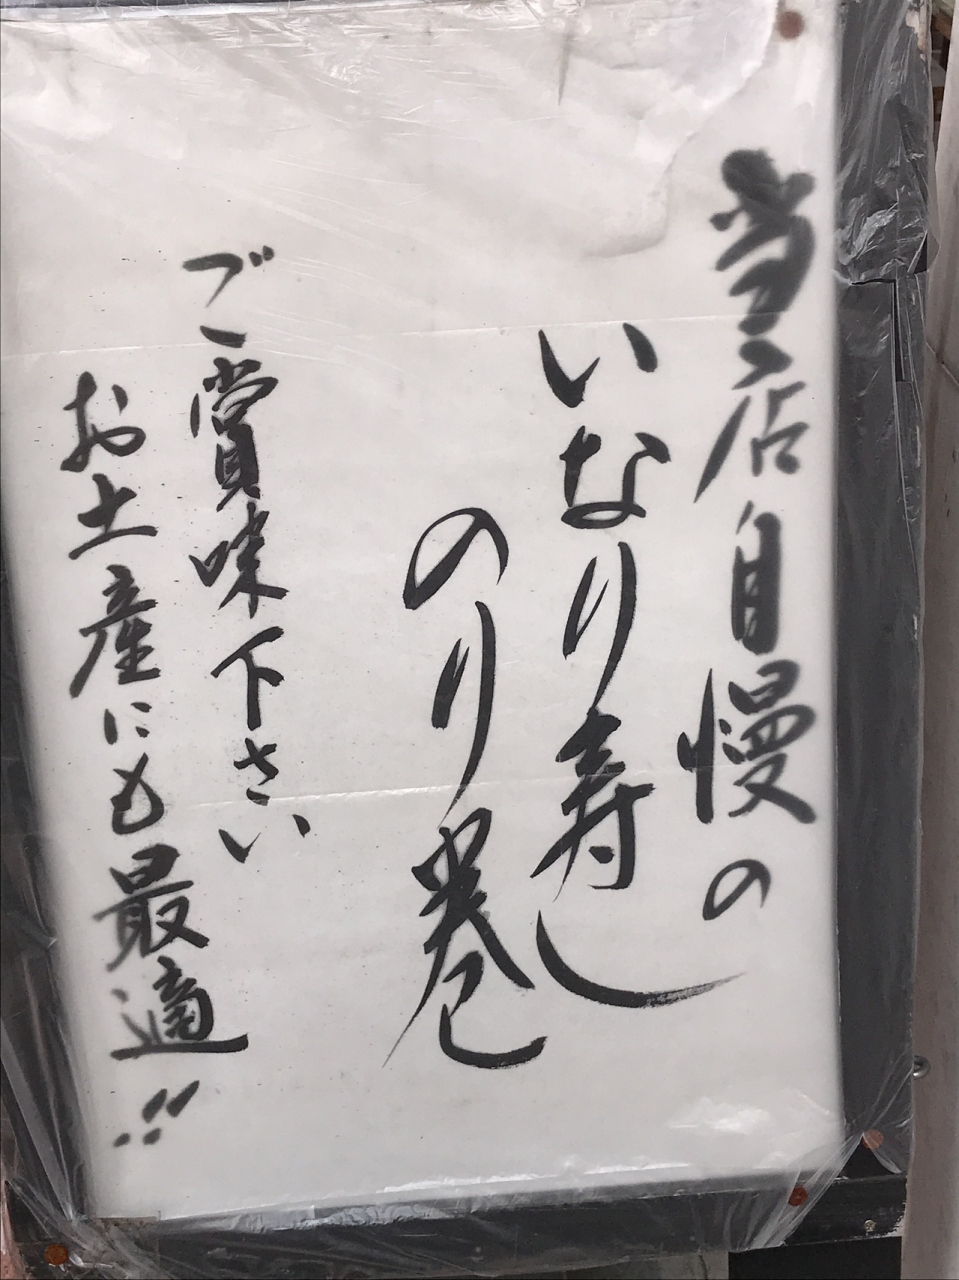 当店自慢の
いなり寿し
のり巻
ご賞味下さい
お土産にも最適!!